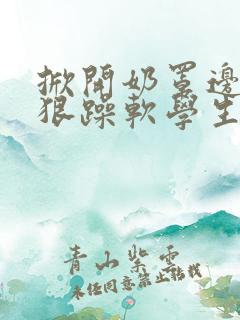 掀開奶罩邊
狠躁軟學生
青山紫雲
未经同意禁止转载